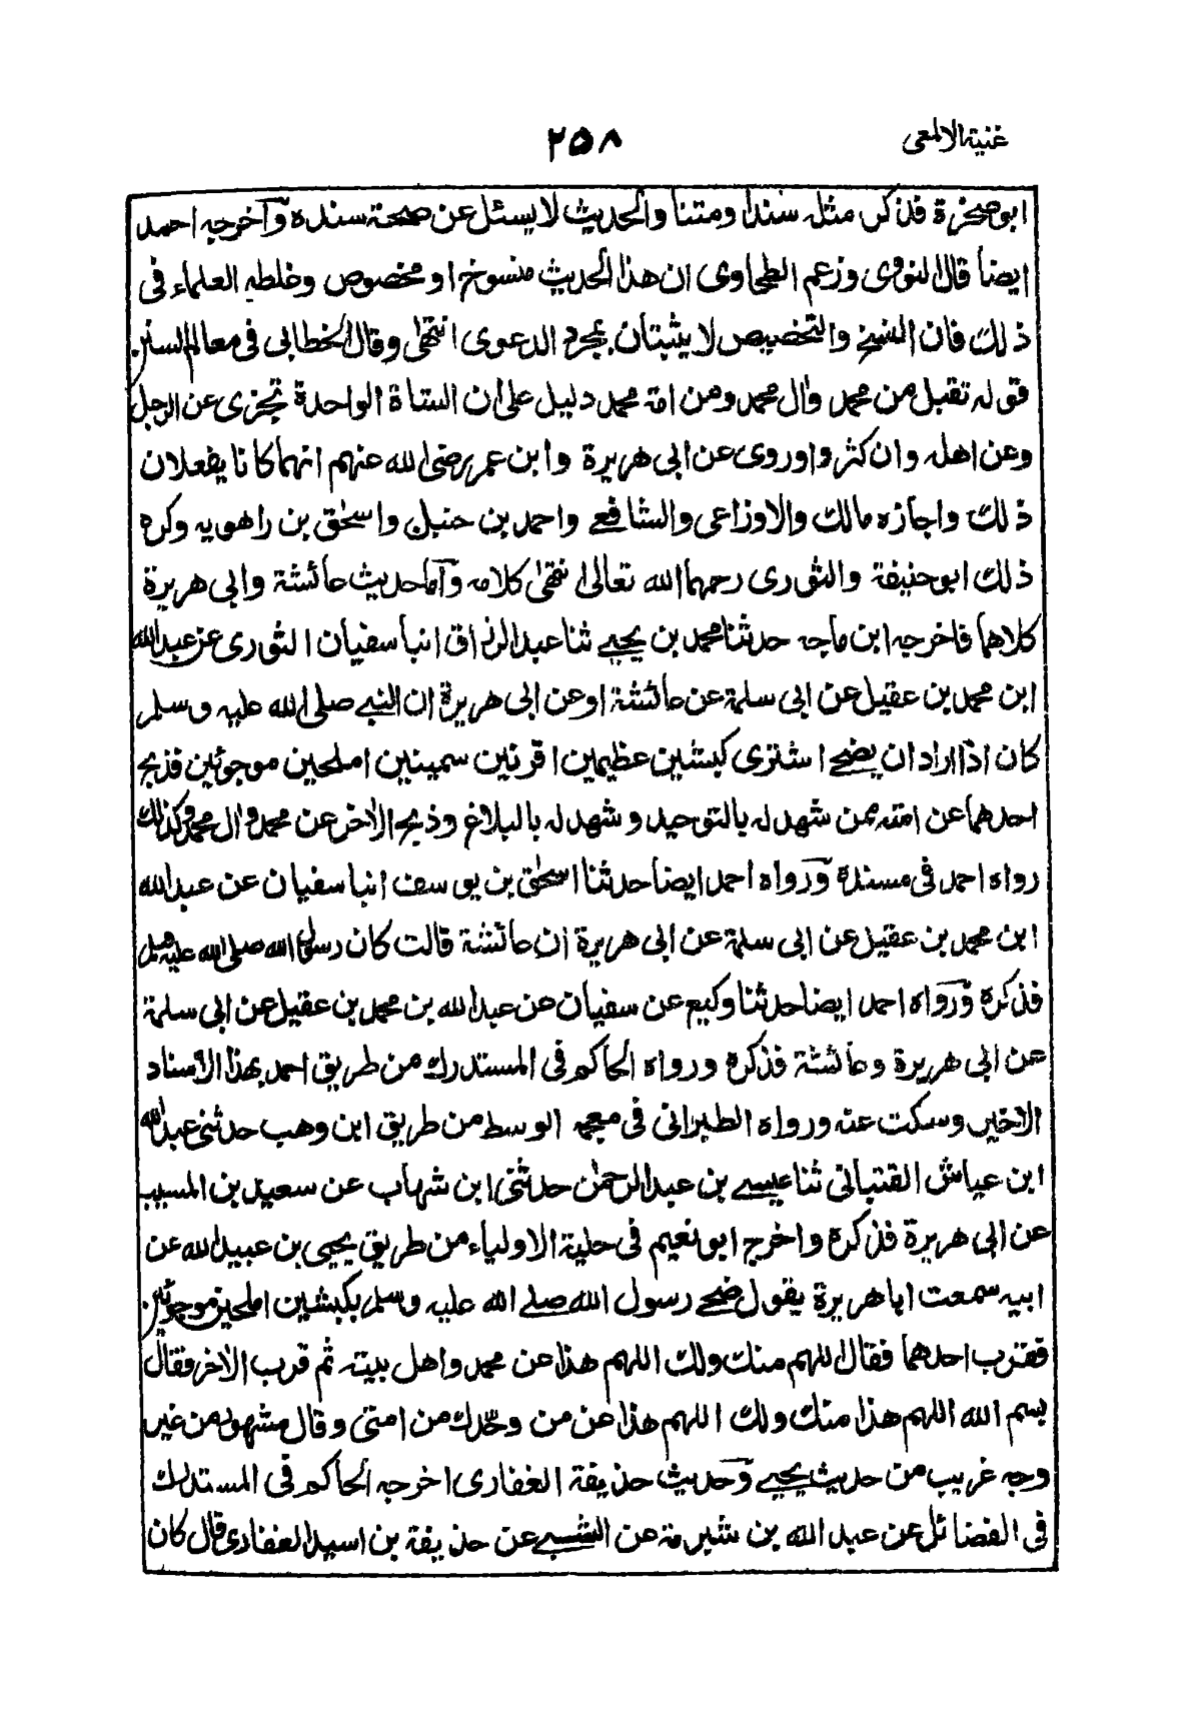 غنية الالمعى
٢٥٨
ابو صخرة فذكر مثله سندا ومتنا والحديث لا يسئل عن صحة سنده وآخرجه احمد
ايضا قال النووى وزعم الطحاوى ان هذا الحديث منسوخ او مخصوص وغلطه العلماء فى
ذلك فان النسخ والتخصيص لا يثبتان بمجرد الدعوى انتهى وقال الخطابى فى معالم السنن
قوله تقبل من محمد وآل محمد ومن امة محمد دليل على ان الشاة الواحدة تجزى عن الرجل
وعن اهله وان كثروا وروى عن ابى هريرة وابن عمر رضى الله عنهم انهما كانا يفعلان
ذلك واجازه مالك والاوزاعى والشافعى واحمد بن حنبل واسحٰق بن راهويه وكره
ذلك ابو حنيفة والثورى رحمهما الله تعالى انتهىٰ كلامه وآما حديث عائشة وابى هريرة
كلاهما فاخرجه ابن ماجه حدثنا محمد بن يحيى ثنا عبد الرزاق انبأ سفيان الثورى عن عبد الله
ابن محمد بن عقيل عن ابى سلمة عن عائشة او عن ابى هريرة ان النبى صلى الله عليه وسلم
كان اذا اراد ان يضحى اشترى كبشين عظيمين اقرنين سمينين املحين موجوئين فذبح
احدهما عن امته ممن شهد له بالتوحيد وشهد له بالبلاغ وذبح الآخر عن محمد وآل محمد وكذلك
رواه احمد فى مسنده ورواه احمد ايضا حدثنا اسحٰق بن يوسف انبا سفيان عن عبد الله
ابن محمد بن عقيل عن ابى سلمة عن ابى هريرة ان عائشة قالت كان رسول الله صلى الله عليه وسلم
فذكره ورواه احمد ايضا حدثنا وكيع عن سفيان عن عبد الله بن محمد بن عقيل عن ابى سلمة
عن ابى هريرة وعائشة فذكره ورواه الحاكم فى المستدرك من طريق احمد بهذا الاسناد
الاخير وسكت عنه ورواه الطبرانى فى معجمه الوسط من طريق ابن وهب حدثنى عبد الله
ابن عياش القتبانى ثنا عيسى بن عبد الرحمٰن حدثنى ابن شهاب عن سعيد بن المسيب
عن ابى هريرة فذكره واخرج ابو نعيم فى حلية الاولياء من طريق يحيى بن عبيد الله عن
ابيه سمعت ابا هريرة يقول ضحى رسول الله صلى الله عليه وسلم بكبشين املحين موجوئين
فقرب احدهما فقال اللهم منك ولك اللهم هذا عن محمد واهل بيته ثم قرب الآخر فقال
بسم الله اللهم هذا منك ولك اللهم هذا عن من وحّدك من امتى وقال مشهور من غير
وجه غريب من حديث يحيى وحديث حذيفة الغفارى اخرجه الحاكم فى المستدرك
فى الفضائل عن عبد الله بن شبرمة عن الشعبى عن حذيفة بن اسيد الغفارى قال كان